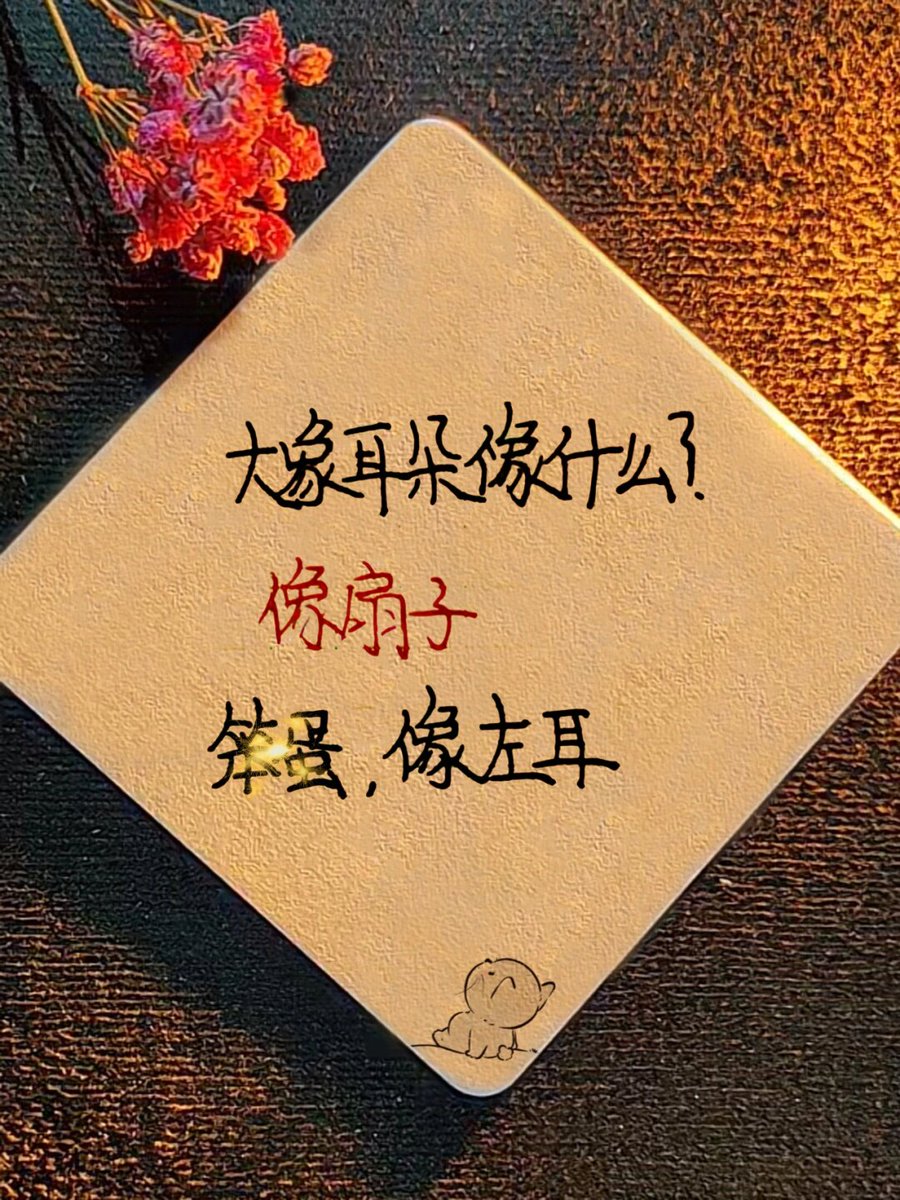 大象耳朵像什么?
像扇子
笨蛋,像左耳